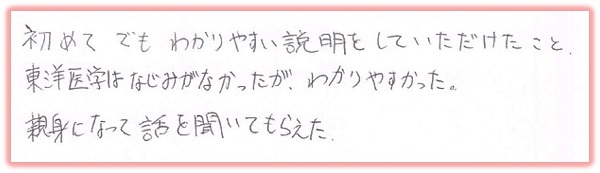 初めて でも わかりやすい 説明を していただけた こと.
東洋医学は なじみがなかったが、わかりやすかった。
親身になって 話を聞いてもらえた.